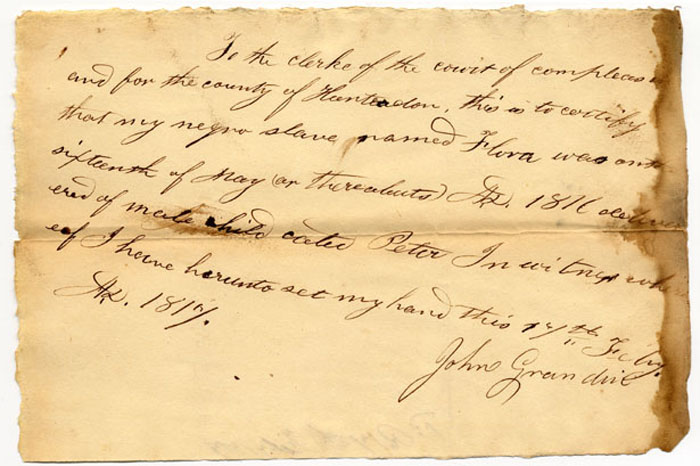 To the clerke of the court of compleas in
and for the county of Hunterdon, this is to certify
that my negro slave named Flora was on the
sixteenth of May (or thereabouts) AD. 1816
ered of male child called Peter In witness wh
eof I have herunto set my hand this 17th Feby.
AD. 1817.
John Grandin